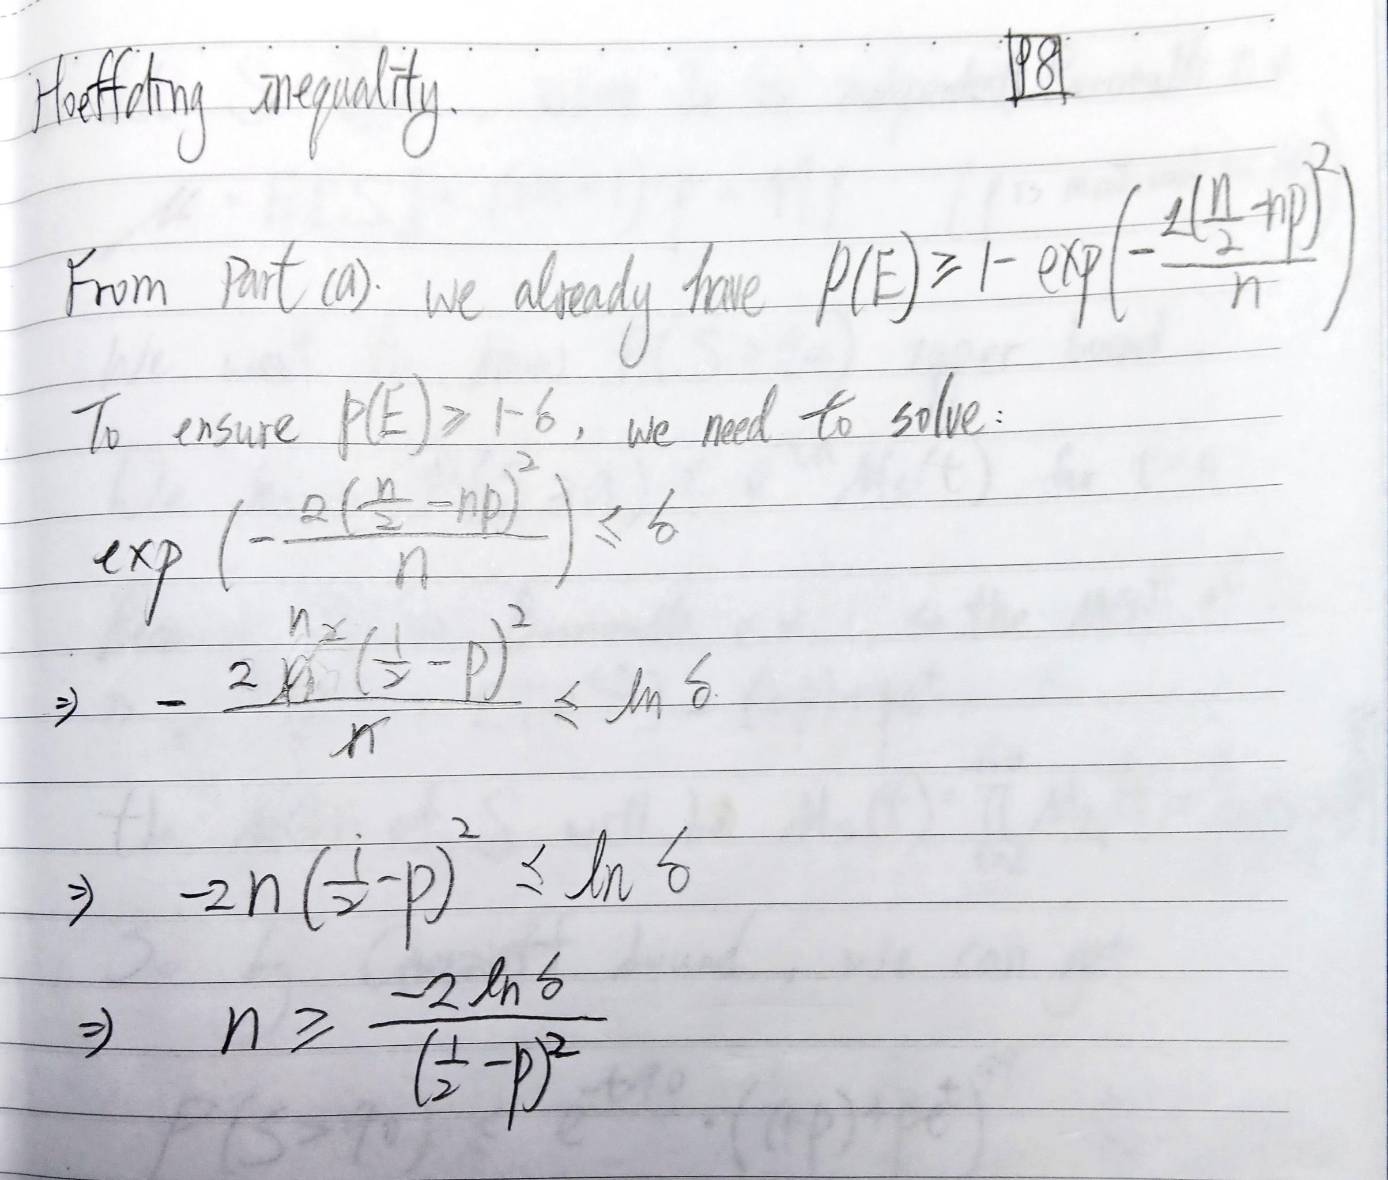 Hoeffding inequality.
P8
From Part (a). we already have P(E) ≥ 1 - exp(-\frac{2(\frac{n}{2}-np)^2}{n})
To ensure P(E) ≥ 1-δ, we need to solve:
exp(-\frac{2(\frac{n}{2}-np)^2}{n}) ≤ δ
⇒ -\frac{2n^2(\frac{1}{2}-p)^2}{n} ≤ ln δ.
⇒ -2n(\frac{1}{2}-p)^2 ≤ ln δ
⇒ n ≥ \frac{-2 ln δ}{(\frac{1}{2}-p)^2}